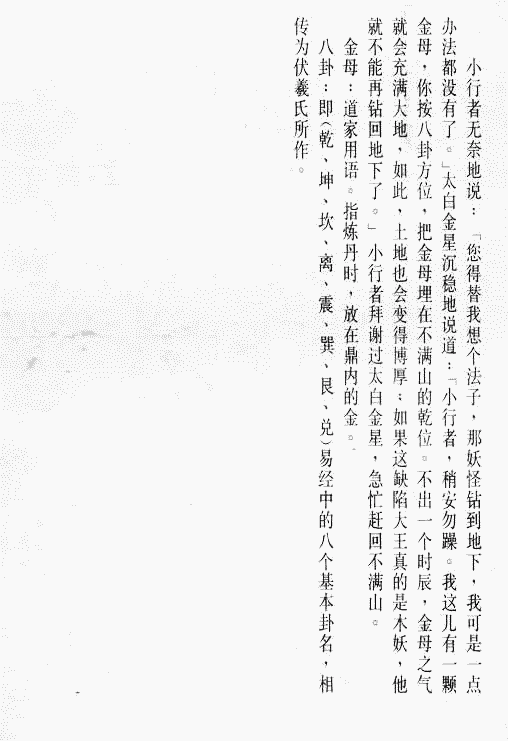 小行者无奈地说：「您得替我想个法子，那妖怪钻到地下，我可是一点
办法都没有了。」太白金星沉稳地说道：「小行者，稍安勿躁。我这儿有一颗
金母，你按八卦方位，把金母埋在不满山的乾位。不出一个时辰，金母之气
就会充满大地，如此，土地也会变得博厚；如果这缺陷大王真的是木妖，他
就不能再钻回地下了。」小行者拜谢过太白金星，急忙赶回不满山。
金母：道家用语。指炼丹时，放在鼎内的金。
八卦：即（乾、坤、坎、离、震、巽、艮、兑）易经中的八个基本卦名，相
传为伏羲氏所作。